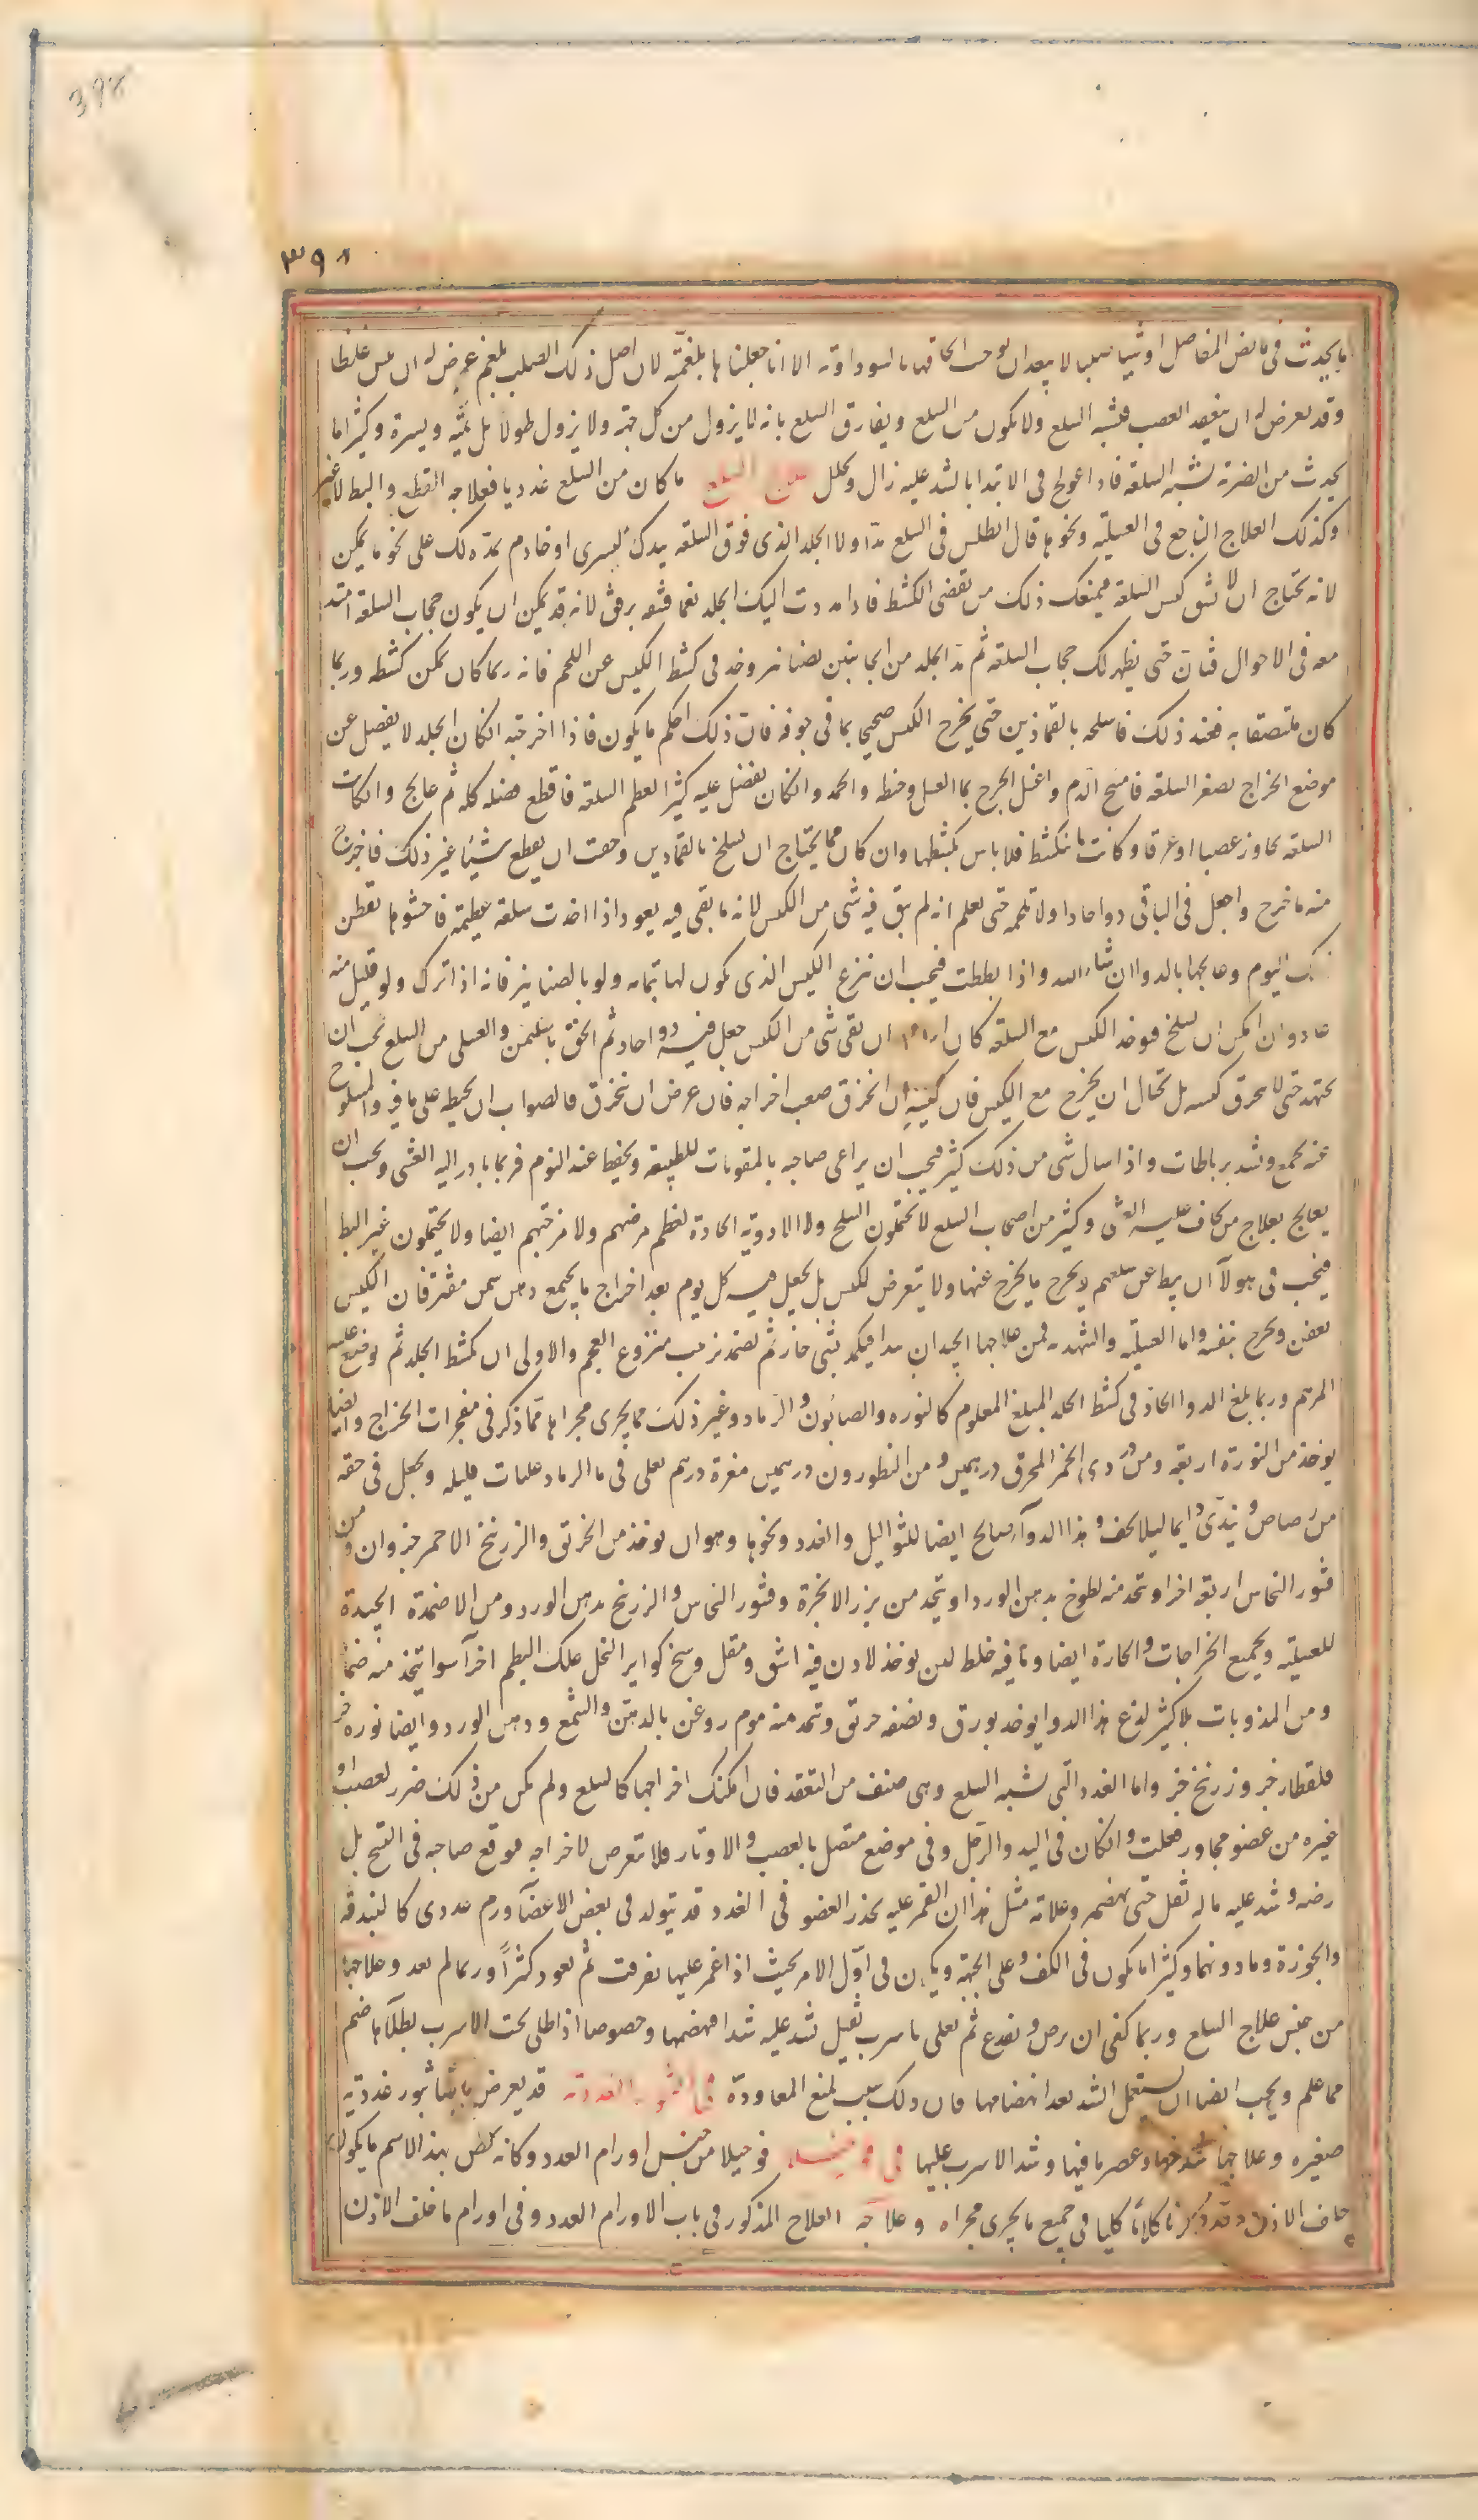 398
٣٩٨
ما يحدث في مابض المفاصل او شيا صلبا لا يبعد ان يوجب الحاقها بالسوداوية الا انا جعلناها بلغمية لان اصل ذلك الصلب بلغم عرض له ان يبس غلظا
وقد يعرض له ان يعقد العصب فيشبه السلع ولا يكون من السلع ويفارق السلع بانه لا يزول من كل جهة ولا يزول طولا بل يمنة ويسرة وكثيرا ما
يحدث من الضربة شبه السلعة فاذا عولج في الابتداء بالشد عليه زال وتحلل علاج السلع ما كان من السلع غدديا فعلاجه القطع والبط لا غير
وكذلك العلاج الناجع في العسلية ونحوها قال انطلس في السلع مد اولا الجلد الذي فوق السلعة بيدك اليسرى او خادم يمده لك على نحو ما يمكن
لانه تحتاج ان لا تشق كيس السلعة فيمنعك ذلك من تقصي الكشط فاذا مددت اليك الجلد نعما فشقه برفق لانه قد يمكن ان يكون حجاب السلعة امتد
معه في الاحوال فتأن حتى يظهر لك حجاب السلعة ثم مد الجلد من الجانبين بصنانير وخذ في كشط الكيس عن اللحم فانه ربما كان يمكن كشطه وربما
كان ملتصقا به فعند ذلك فاسلخه بالقمادين حتى يخرج الكيس صحيحا بما في جوفه فان ذلك احكم ما يكون فاذا اخرجته انكان الجلد لا يفضل عن
موضع الخراج لصغر السلعة فامسح الدم واغسل الجرح بماء العسل وخطه والحمه وانكان يفضل عليه كثيرا لعظم السلعة فاقطع فضله كله ثم عالج وان كانت
السلعة تجاوز عصبا او عرقا وكانت مما تنكشط فلا باس بكشطها وان كان مما يحتاج ان يسلخ بالقمادين وخفت ان يقطع شيئا غير ذلك فاخرج
منه ما خرج واجعل في الباقي دواء حادا ولا تلحمه حتى تعلم انه لم يبق فيه شي من الكيس لانه ما بقي فيه يعود اذا اخذت سلعة عظيمة فاحشوها بقطن
ذلك اليوم وعالجها بالدواء ان شاء الله واذا بططت فيجب ان تنزع الكيس الذي يكون لها بتمامه ولو بالصنانير فانه اذا ترك ولو قليل منه
عاد وان امكن ان يسلخ فيوخذ الكيس مع السلعة كان ان بقي شي من الكيس جعل فيه دواء حاد ثم الحق بالسمن والعسلي من السلع يجب ان
يجتهد حتى لا يخرق كيسه بل تحتال ان يخرج مع الكيس فان كيسه ان انخرق صعب اخراجه فان عرض ان ينخرق فالصواب ان يخيطه على ما فيه والمسلوخ
عنه يجمع وشد برباطات واذا سال شي من ذلك كثير فيجب ان يراعى صاحبه بالمقويات للطبيعة ويحفظ عند النوم فربما بادر اليه الغشي ويجب ان
يعالج بعلاج من يخاف عليه الغشي وكثير من اصحاب السلع لا يحتملون السلخ ولا الادوية الحادة لعظم مرضهم ولا مزجتهم ايضا ولا يحتملون غير البط
فيجب في هولاء ان يبط عن سلعهم ويخرج ما يخرج عنها ولا يتعرض للكيس بل يجعل فيه كل يوم بعد اخراج ما يجتمع دهن سمن مفتر فان الكيس
يعفن ويخرج بنفسه واما العسلية والشهدية فمن علاجها الجيد ان يبدا فيكمد بشي حار ثم تضمد بزبيب منزوع العجم والاولى ان يكشط الجلد ثم يوضع عليه
المرهم وربما بلغ الدواء الحاد في كشط الجلد المبلغ المعلوم كالنوره والصابون والرماد وغير ذلك مما يجري مجراها مما ذكر في مفجرات الخراج وايضا
يوخذ من النورة اربعة ومن دردي الخمر المحرق درهمين ومن النطرون درهمين مغرة درهم يغلى في ماء الرماد غليات قليله ويجعل في حقه
من رصاص ويندى دايما ليلا يجف وهذا الدواء صالح ايضا للثواليل والغدد ونحوها وهو ان يوخذ من الخربق والزرنيخ الاحمر جزوان ومن
قشور النحاس اربعة اجزاء وتتخذ منه لطوخ بدهن الورد او يتخذ من بزر الانجرة وقشور النحاس والزرنيخ بدهن الورد ومن الاضمدة الجيدة
للعسلية ولجميع الخراجات والحارة ايضا وما فيه خلط لين يوخذ لاذن فيه اشق ومقل وسخ كواير النحل علك البطم اجزاء سواء يتخذ منه ضماد
ومن المذوبات بلا كثير لذع هذا الدواء يوخذ بورق ونصفه خربق وتتخذ منه موم روغن بالدهن والشمع ودهن الورد وايضا نوره جز
قلقطار جز وزرنيخ جز واما الغدد التي تشبه السلع وهي صنف من التعقد فان امكنك اخراجها كالسلع ولم يكن من ذلك ضرر لعصب او
غيره من عضو مجاور فعلت وانكان في اليد والرجل وفي موضع متصل بالعصب والاوتار فلا تتعرض لاخراجه فيوقع صاحبه في التشنج بل
رضه وشد عليه ما له ثقل حتى يهضمه وعلامة مثل هذا ان الغمز عليه يخدر العضو في الغدد قد يتولد في بعض الاعضاء ورم غددي كالبندقة
والجوزة وما دونهما وكثيرا ما يكون في الكف وعلى الجبهة ويكون في اول الامر بحيث اذا غمز عليها تفرقت ثم تعود كثيرا وربما لم تعد وعلاجها
من جنس علاج السلع وربما كفى ان يرض وتفدغ ثم تعلى باسرب ثقيل يشد عليه شدا فيهضمها وخصوصا اذا طلي تحت الاسرب بطلاء هاضم
مما علم ويجب ايضا ان يستعمل الشد بعد انهضامها فان ذلك سبب لمنع المعاودة في البثور الغددية قد يعرض ايضا بثور غددية
صغيره وعلاجها شدخها وعصر ما فيها وشد الاسرب عليها في فوجيثلا فوجيلا من جنس اورام الغدد وكانه يخص بهذا الاسم ما يكون
خلف الاذن وقد ذكرنا كلاما كليا في جميع ما يجري مجراه وعلاجه العلاج المذكور في باب الاورام الغدد وفي اورام ما خلف الاذن